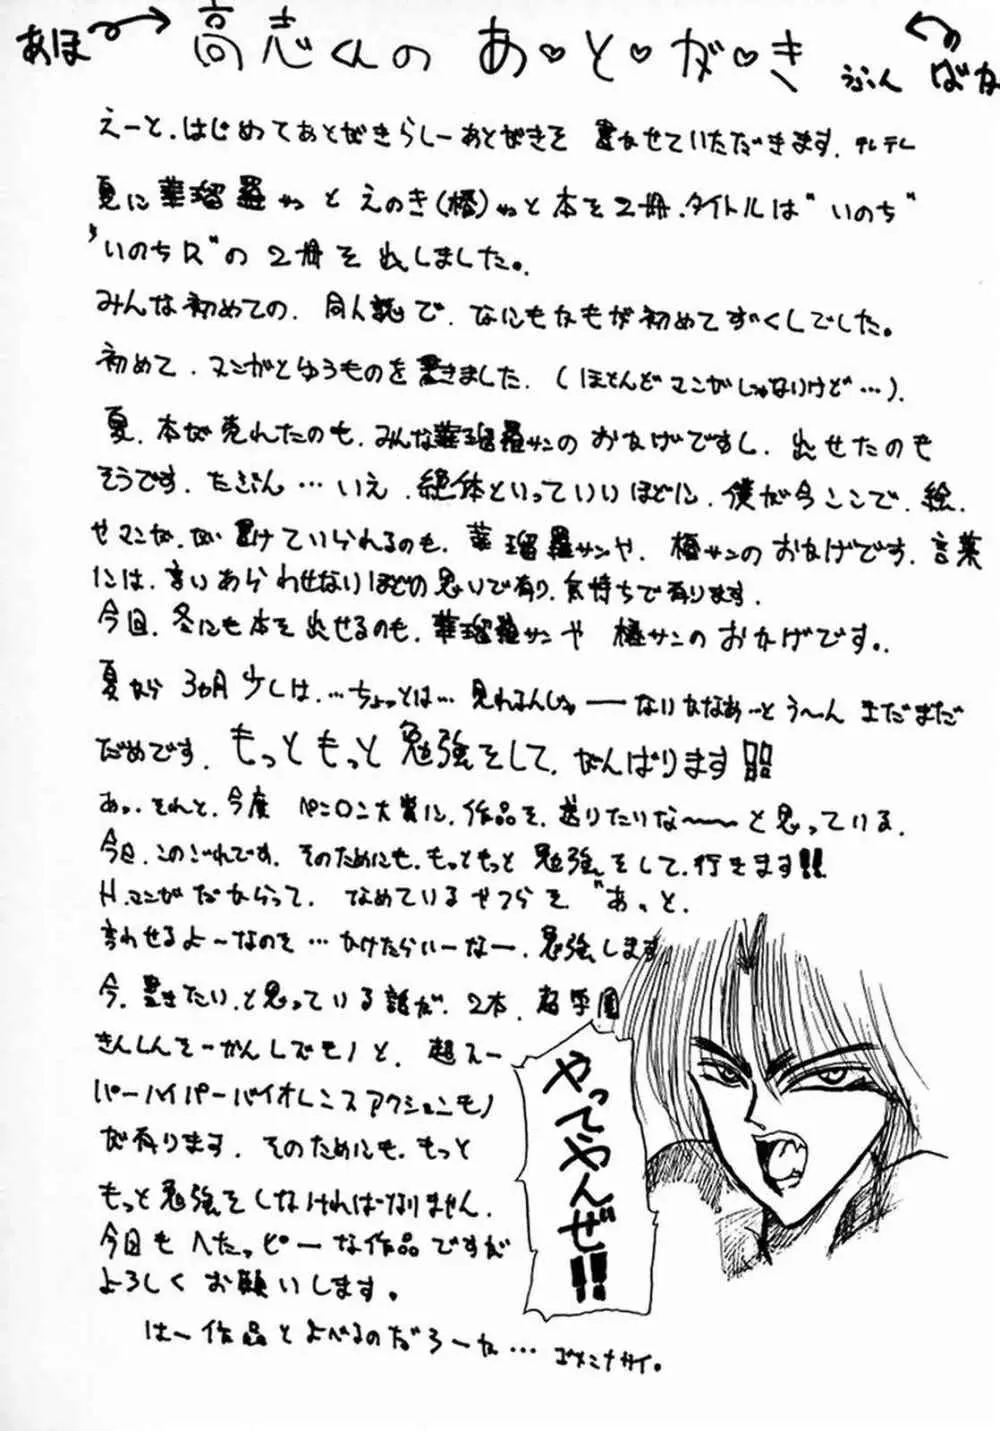 あほ 高志くんの あ・と・が・き うぷん ばか
えーと.はじめてあとがきらしーあとがきを 書かせていただきます. テレテレ
夏に華瑠羅サンと えのき(榎)サンと本を2冊.タイトルは"いのち"
"いのちR"の 2冊を 出しました。
みんな初めての. 同人誌で. なにもかもが初めてずくしでした。
初めて. マンガとゆうものを書きました. (ほとんどマンガじゃないけど…).
夏. 本が売れたのも. みんな華瑠羅サンの おかげですし. 出せたのも
そうです. たぶん… いえ. 絶体といっていいほどに. 僕が今ここで. 絵.
やマンガ. が 書けていられるのも. 華瑠羅サンや. 榎サンの おかげです. 言葉
には. 言いあらわせないほどの思いで有り. 気持ちで有ります.
今回. 冬にも本を出せるのも. 華瑠羅サンや 榎サンの おかげです。.
夏から 3ヵ月 少しは. …ちょっとは… 見れるんじゃーーないかなあーと う〜ん まだまだ
だめです. もっともっと勉強をして. がんばります!!
あっ. それと. 今度 ペンロン大賞に. 作品を. 送りたいな〜〜と思っている.
今日. このごれです. そのためにも. もっともっと 勉強をして. 行きます!!
H.マンガ だからって. なめているやつらを "あっと.
言わせるよ〜なのを… かけたらいーなー. 勉強します
今. 書きたい. と思っている話が. 2本. 超学園
きんしんそーかんしズモノと. 超スー
パーハイパーバイオレンスアクションモノ
が有ります. そのためにも. もっと
もっと勉強をしなければなりません.
今回も へたっピーな作品ですが
よろしく お願いします。
は〜作品とよべるのだろーか… ゴメンナサイ。
やってやんぜ!!